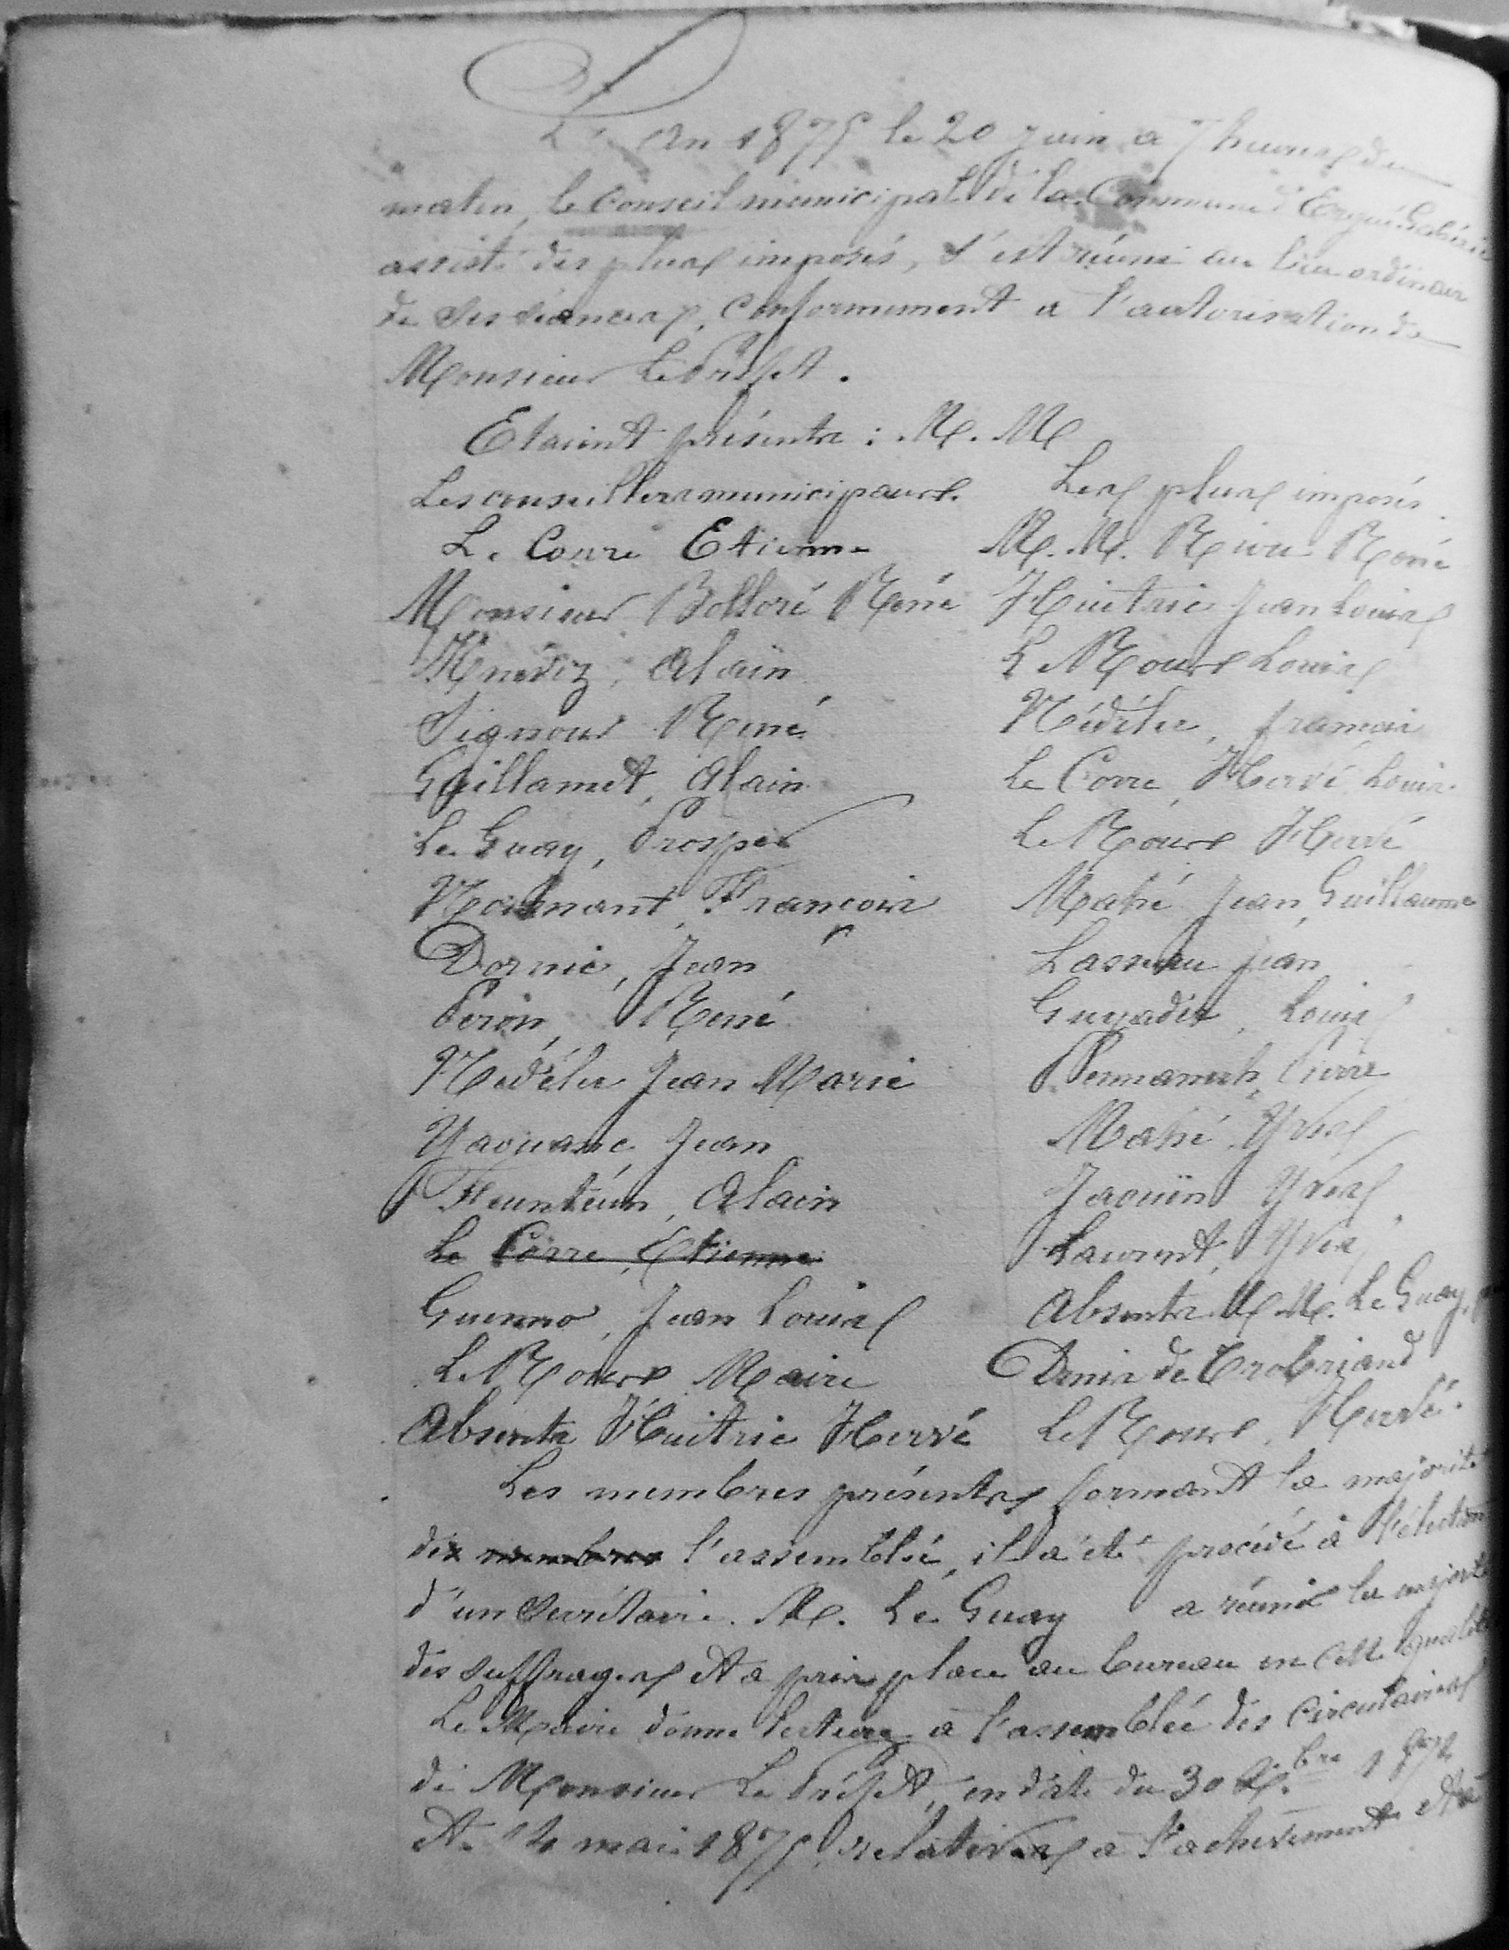 L'an 1875 le 20 juin a 7 heures du
matin, le Conseil municipal de la Commune d'Ergué-Gabéric
assisté des plus imposés, s'est réuni au lieu ordinaire
de ses séances, conformément a l'autorisation de
Monsieur Le Préfet.
Etaient présents : M. M
Les conseillers municipaux
Le Corre Etienne
Monsieur Bolloré René
Kneviz, Alain
Signour René
Guillamet, Alain
Le Guay, Prosper
Nathant, François
Dornic, Jean
Peron, René
Nédélec Jean Marie
Yaouanc Jean
Feunteun, Alain
Le Corre, Etienne
Guenno, Jean Louis
Le Roux Maire
Absents Huitric Hervé
Les plus imposés
M. M. Riou René
Huitric Jean Louis
Le Roux Louis
Nédélec, français
Le Corre, Hervé Louis
Le Roux Hervé
Mahé Jean, Guillaume
Lasseau Jean
Guyader, Louis
Pennanech, Pierre
Mahé, Yves
Jaouin Yves
Laurent, Yves
Absents M. M. Le Guay,
Denis de Trobriand
Le Roux, Hervé.
Les membres présents formant la majorité
des membres l'assemblée, il a été procédé à l'élection
d'un Secrétaire. M. Le Guay a réuni la majorité
des suffrages et a pris place au bureau en cette qualité
Le Maire donne lecture à l'assemblée des circulaires
de Monsieur Le Préfet, en date du 30 bre
et 14 mai 1875, relatives à l'achèvement et à